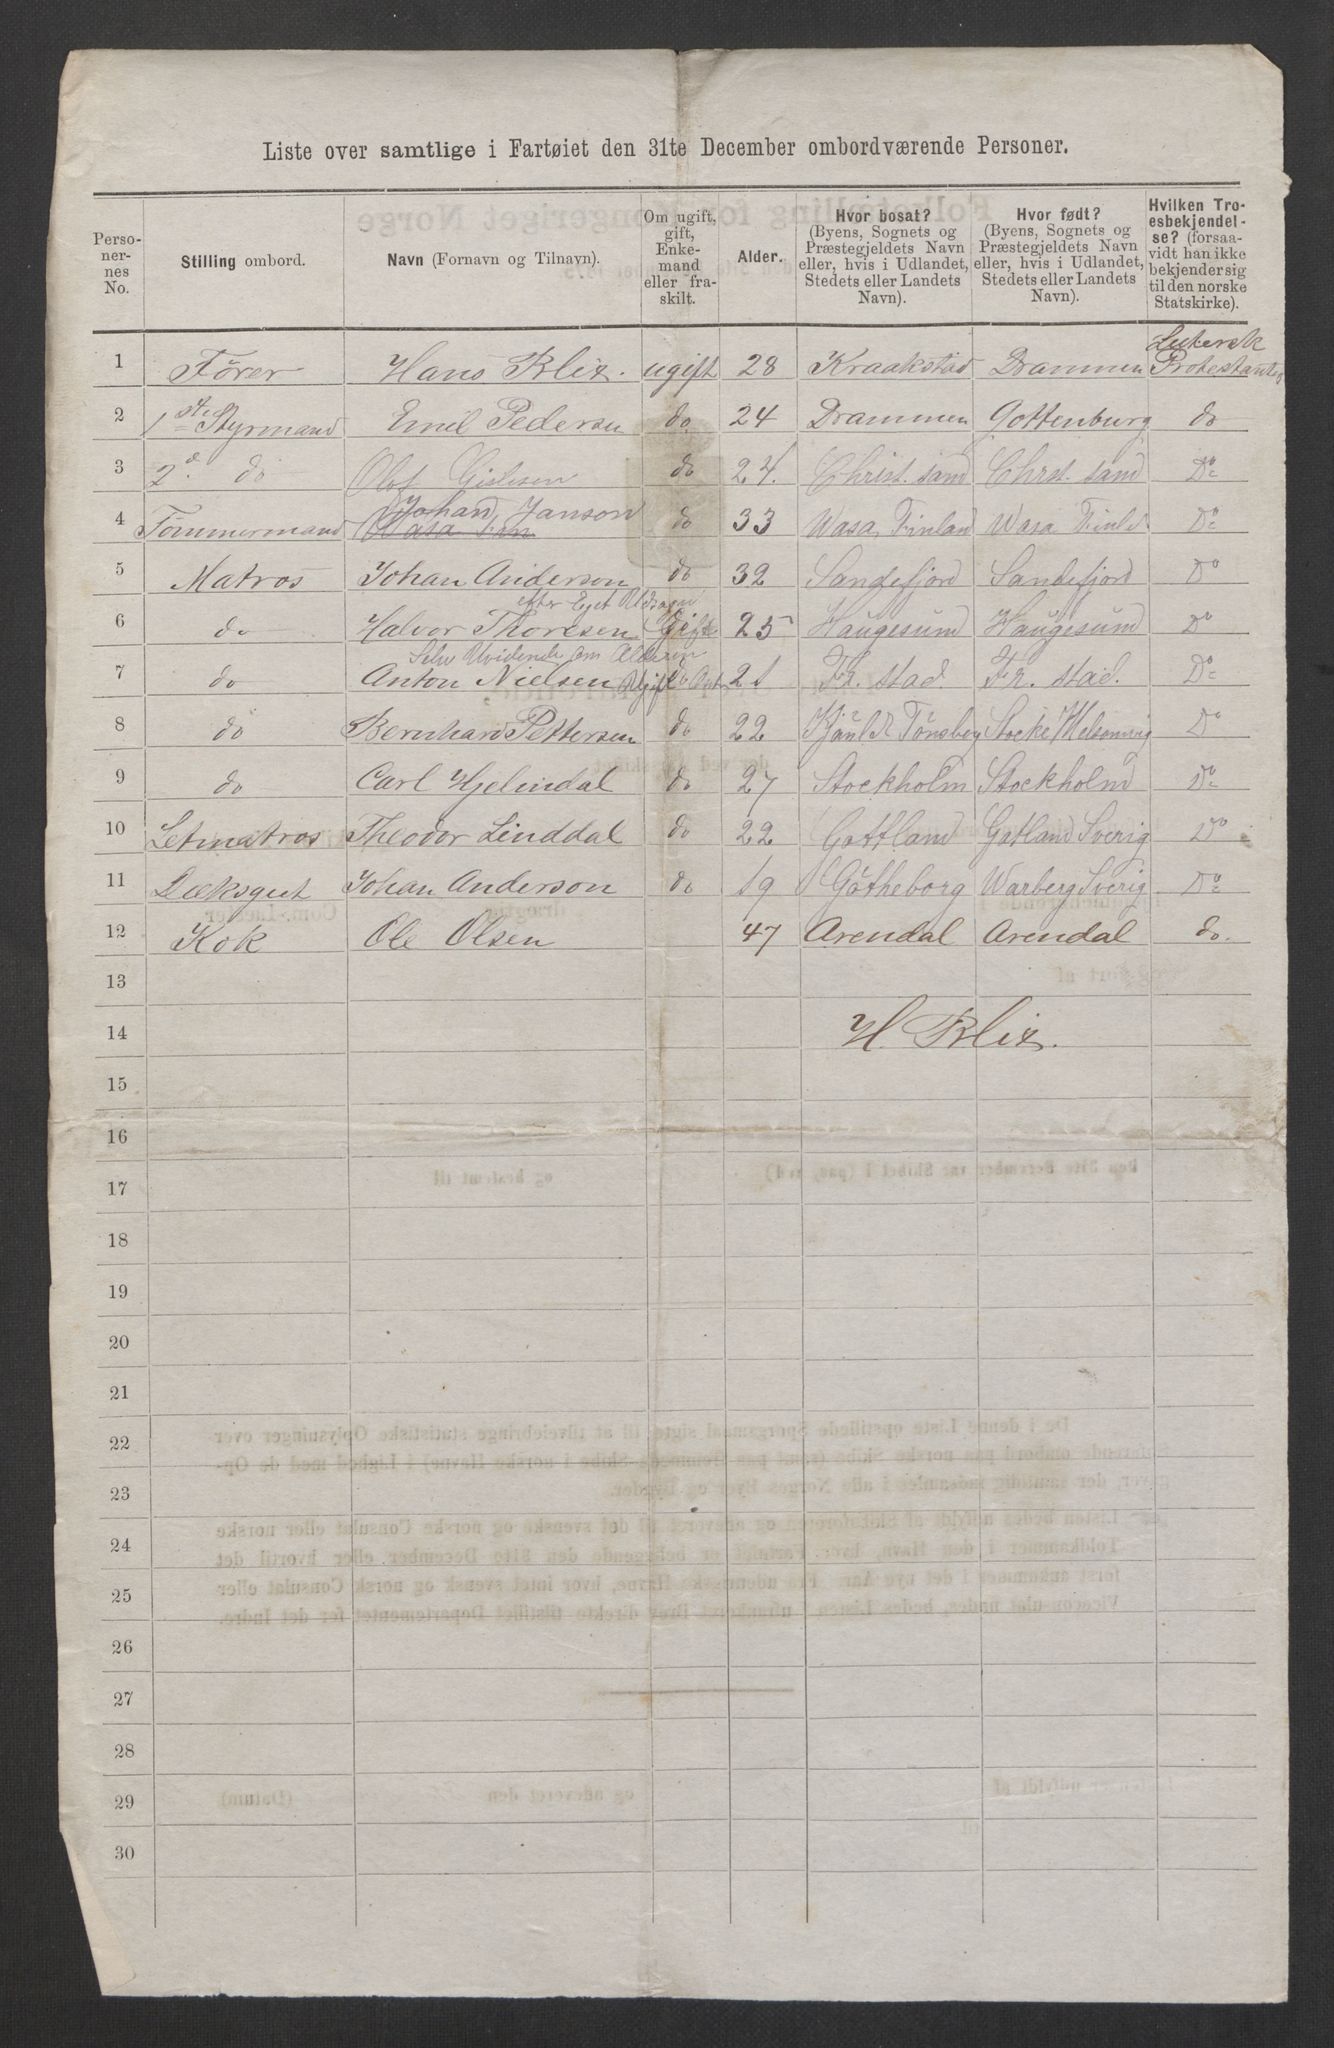 Liste over samtlige i Fartøiet den 31te December ombordværende Personer.
Personernes No. | Stilling ombord. | Navn (Fornavn og Tilnavn). | Om ugift, gift, Enkemand eller fraskilt. | Alder. | Hvor bosat? (Byens, Sognets og Præstegjeldets Navn eller, hvis i Udlandet, Stedets eller Landets Navn). | Hvor født? (Byens, Sognets og Præstegjeldets Navn eller, hvis i Udlandet, Stedets eller Landets Navn). | Hvilken Troesbekjendelse? (forsaavidt han ikke bekjender sig til den norske Statskirke).
1 | Förer | Hans Blix. | ugift | 28 | Kraakstad | Drammen | Lutersk Protestantes
2 | 1ste Styrmand | Emil Pedersen | do | 24 | Drammen | Gottenburg | do
3 | 2d. do | Olof | do | 24. | Christ. sand | Chrst. sand | Do
4 | Tömmermand | Johan Janson | do | 33 | Wasa, Finland | Wasa Finld | Do
5 | Matros | Johan Anderson | do | 32 | Sandefjord | Sandefjord | Do
efter Eget Udsagn
6 | do | Halvor Thoresen | Gift | 25 | Haugesund | Haugesund | Do
Selv Uvidende om Alderen
7 | do | Anton Nielsen | Ugift | 21 | Fr. stad. | Fr. stad. | Do
8 | do | Bernhard Pettersen | do | 22 | Tönsberg | Stocke | Do
9 | do | Carl Hjelmdal | do | 27 | Stockholm | Stockholm | Do
10 | Letmatros | Theodor Linddal | do | 22 | Gottland | Gotland Sverig | Do
11 | Dæksgut | Johan Anderson | do | 19 | Götheborg | Warberg Sverig | Do
12 | Kok | Ole Olsen | 47 | Arendal | Arendal | do.
13
14 | H. Blix.
15
16
17
18
19
20
21
22
23
24
25
26
27
28
29
30